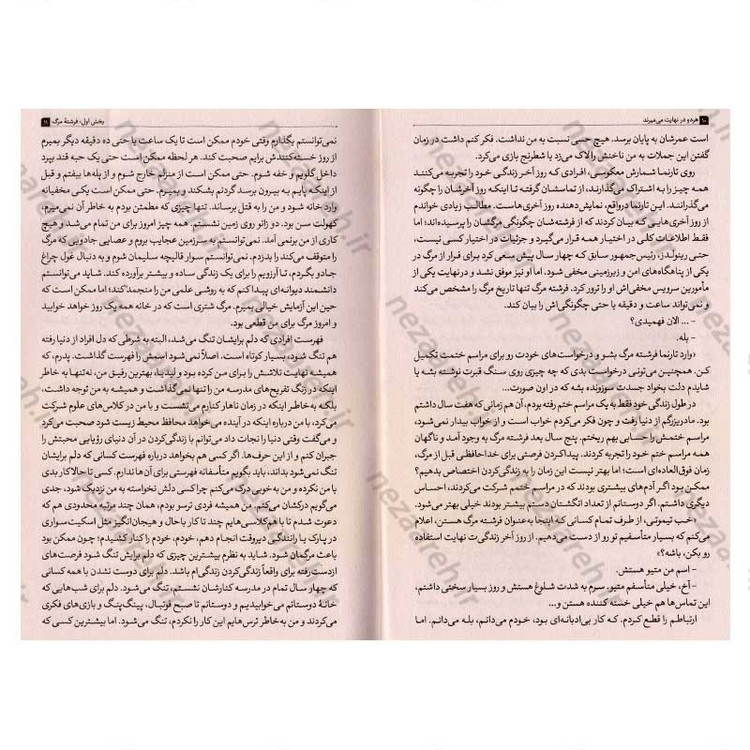 ۱۰ هردو در نهایت می‌میرند
است عمرشان به پایان برسد. هیچ حسی نسبت به من نداشت. فکر کنم داشت در زمان
گفتن این جملات به من ناخنش را لاک می‌زد یا شطرنج بازی می‌کرد.
روی تارنما شمارش معکوسی، افرادی که روز آخر زندگی خود را تجربه می‌کنند
همه چیز را به اشتراک می‌گذارند، از تماسشان گرفته تا اینکه روز آخرشان را چگونه
می‌گذرانند. این تارنما درواقع، نمایش‌دهنده، روز آخری‌هاست. مطالب زیادی خواندم
از روز آخری‌هایی که بیان کردند که از فرشته‌شان چگونگی مرگشان را پرسیده‌اند؛ اما
فقط اطلاعات کلی در اختیار همه قرار می‌گیرد و جزئیات در اختیار کسی نیست،
حتی رینولدز، رئیس‌جمهور سابق که چهار سال پیش سعی کرد برای فرار از مرگ در
یکی از پناهگاه‌های امن و زیرزمینی مخفی شود. اما او نیز موفق نشد و درنهایت یکی از
مأمورین سرویس مخفی‌اش او را ترور کرد. فرشته مرگ تنها تاریخ مرگ را مشخص می‌کند
و نمی‌تواند ساعت و دقیقه یا حتی چگونگی‌اش را بیان کند.
- ... الان فهمیدی؟
- بله.
- وارد تارنما فرشته مرگ بشو و درخواست‌های خودت رو برای مراسم ختمت تکمیل
کن. همچنین می‌تونی درخواست بدی که چه چیزی روی سنگ قبرت نوشته بشه یا
شایدم دلت بخواد جسدت سوزونده بشه که در اون صورت...
در طول زندگی خود فقط به یک مراسم ختم رفته بودم، آن هم زمانی که هفت سال داشتم
بود. مادربزرگم از دنیا رفت و چون فکر می‌کردم خواب است و از خواب بیدار نمی‌شود،
مراسم ختمش را حسابی بهم ریختم. پنج سال بعد فرشته مرگ به وجود آمد و ناگهان
همه مراسم ختم خود را تجربه کردند. پیدا کردن فرصتی برای خداحافظی قبل از مرگ،
زمان فوق‌العاده‌ای است؛ اما بهتر نیست این زمان را به زندگی‌کردن اختصاص بدهیم؟
ممکن بود اگر آدم‌های بیشتری بودند که در مراسم ختمم شرکت می‌کردند، احساس
دیگری داشتم. اگر دوستانم از تعداد انگشتان دستم بیشتر بودند خیلی بهتر می‌شود.
- خب تیموتی، از طرف تمام کسانی که اینجا به‌عنوان فرشته مرگ هستن، اعلام
می‌کنم که بسیار متأسفیم تو رو از دست می‌دهیم. از روز آخر زندگی‌ت نهایت استفاده
رو بکن، باشه؟
- اسم من متیو هستش.
- آخ، خیلی متأسفم متیو. سرم به شدت شلوغ هستش و روز بسیار سختی داشتم،
این تماس‌ها هم خیلی خسته کننده هستن و...
ارتباطم را قطع کردم. که کار بی‌ادبانه‌ای بود، خودم می‌دانم، بله می‌دانم. اما
بخش اول: فرشتهٔ مرگ ۱۱
نمی‌توانستم بگذارم وقتی خودم ممکن است تا یک ساعت یا حتی ده دقیقه دیگر بمیرم
از روز خسته‌کنندش برایم صحبت کند. هر لحظه ممکن است حتی یک حبه قند بپرد
داخل گلویم و خفه شوم. حتی ممکن است از منزلم خارج شوم و از پله‌ها بیفتم و قبل
از اینکه پایم به بیرون برسد گردنم بشکند و بمیرم. حتی ممکن است یکی مخفیانه
وارد خانه شود و من را به قتل برساند. تنها چیزی که مطمئن بودم به خاطر آن نمی‌میرم،
کهولت سن بود. دو زانو روی زمین نشستم. همه چیز امروز برای من تمام می‌شد و هیچ
کاری از من برنمی آمد. نمی‌توانستم به سرزمین عجایب بروم و عصایی جادویی که مرگ
را متوقف می‌کند را بدزدم. نمی‌توانستم سوار قالیچه سلیمان شوم و به دنبال غول چراغ
جادو بگردم، تا آرزویم را برای یک زندگی ساده و بیشتر برآورده کند. شاید می‌توانستم
دانشمند دیوانه‌ای پیدا کنم که به روشی علمی من را منجمد کند؛ اما ممکن است که
حین این آزمایش خیالی بمیرم. مرگ شتری است که در خانه همه یک روز خواهد خوابید
و امروز مرگ برای من قطعی بود.
فهرست افرادی که دلم برایشان تنگ می‌شد، البته به شرطی که دل افراد از دنیا رفته
هم تنگ شود، بسیار کوتاه است، اصلاً نمی‌شود اسمش را فهرست گذاشت. پدرم، که
همیشه نهایت تلاشش را برای من کرده بود و لیدیا، بهترین رفیق من، نه‌تنها به خاطر
اینکه در زنگ تفریح‌های مدرسه من را تنها نمی‌گذاشت و همیشه به من توجه داشت،
بلکه به‌خاطر اینکه در زمان ناهار کنارم می‌نشست و با من در کلاس‌های علوم شرکت
می‌کرد، با من درباره اینکه در آینده می‌خواهد محافظ محیط زیست شود صحبت می‌کرد
و می‌گفت وقتی دنیا را نجات داد می‌توانم با زندگی‌کردن در آن دنیای رؤیایی محبتش را
جبران کنم و از این حرف‌ها. اگر کسی هم بخواهد درباره فهرست کسانی که دلم برایشان
تنگ نمی‌شود بداند، باید بگویم متأسفانه فهرستی برای آن ها ندارم. کسی تا حالا کار بدی
با من نکرده و من به‌خوبی درک می‌کنم چرا کسی دلش نخواسته به من نزدیک شود، جدی
می‌گویم درکشان می‌کنم. من همیشه فردی ترسو بودم، همان چند مرتبه محدودی هم که
دعوت شدم تا با هم‌کلاسی‌هایم چند تا کار باحال و هیجان‌انگیز مثل اسکیت‌سواری
در پارک یا رانندگی دیروقت انجام دهم، خودم، خودم را کنار کشیدم؛ چون ممکن بود
باعث مرگمان شود. شاید به نظرم بیشترین چیزی که دلم برایش تنگ شود فرصت‌های
ازدست رفته برای واقعاً زندگی‌کردن زندگی‌ام باشد. دلم برای دوست نشدن با همه کسانی
که چهار سال تمام در مدرسه کنارشان نشستم، تنگ می‌شود. دلم برای شب‌هایی که
خانهٔ دوستانم می‌خوابیدیم و دوستانم تا صبح فوتبال، پینگ‌پنگ و بازی‌های فکری
می‌کردند و من به‌خاطر ترس‌هایم این کار را نکردم، تنگ می‌شود. اما بیشترین کسی که
nezaareh.ir